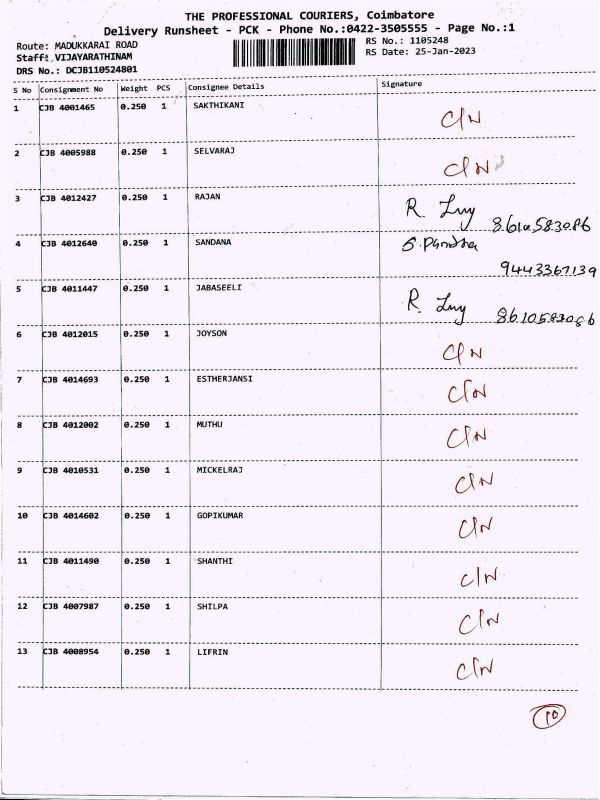 THE PROFESSIONAL COURIERS, Coimbatore
Delivery Runsheet - PCK - Phone No.:0422-3505555 - Page No.:1
Route: MADUKKARAI ROAD RS No.: 1105248
Staff: VIJAYARATHINAM RS Date: 25-Jan-2023
DRS No.: DCJB110524801
S No Consignment No Weight PCS Consignee Details Signature
1 CJB 4001465 0.250 1 SAKTHIKANI C/N
2 CJB 4005988 0.250 1 SELVARAJ C/N
3 CJB 4012427 0.250 1 RAJAN R.
8610583086
4 CJB 4012640 0.250 1 SANDANA S.
9443367139
5 CJB 4011447 0.250 1 JABASEELI R.
8610583086
6 CJB 4012015 0.250 1 JOYSON C/N
7 CJB 4014693 0.250 1 ESTHERJANSI C/N
8 CJB 4012002 0.250 1 MUTHU C/N
9 CJB 4010531 0.250 1 MICKELRAJ C/N
10 CJB 4014602 0.250 1 GOPIKUMAR C/N
11 CJB 4011490 0.250 1 SHANTHI C/N
12 CJB 4007987 0.250 1 SHILPA C/N
13 CJB 4008954 0.250 1 LIFRIN C/N
10